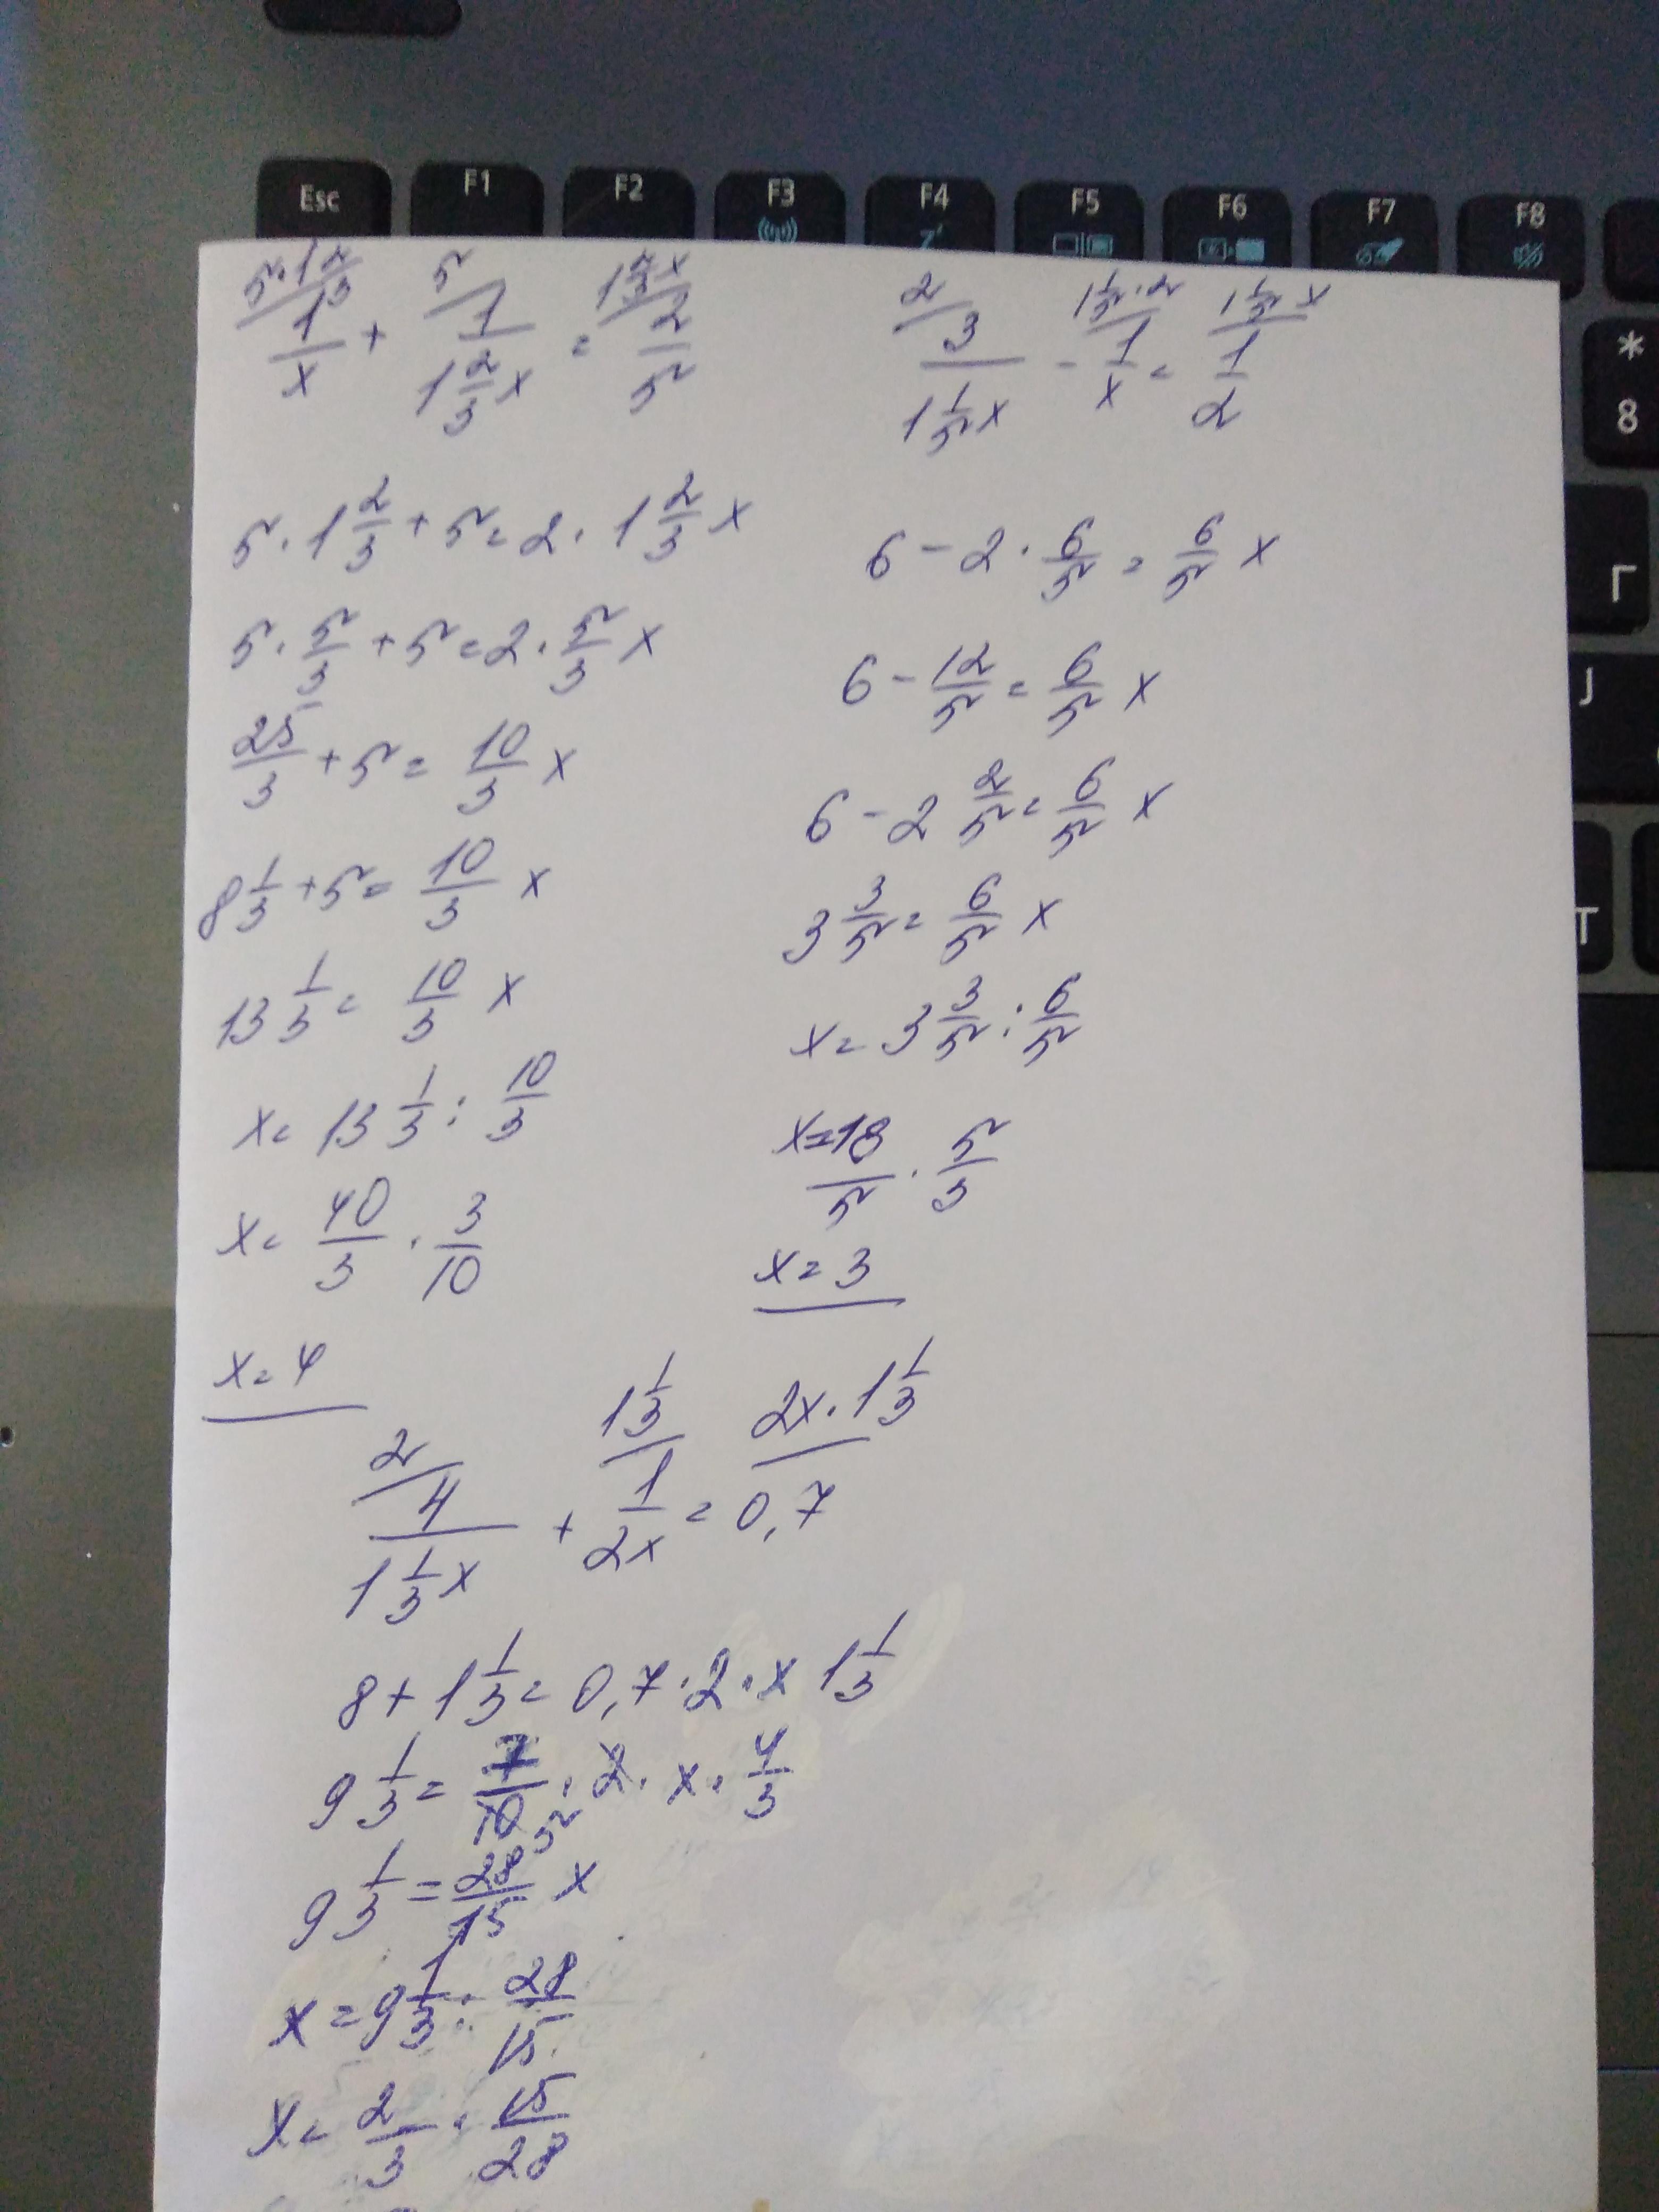 Esc F1 F2 F3 F4 F5 F6 F7 F8
* 8
Г
J
T
5·1 2/3 / 1/x + 5 / 1/(1 2/3 x) = 1 2/3 x / 2/5
5·1 2/3 + 5 = 2·1 2/3 x
5·5/3 + 5 = 2·5/3 x
25/3 + 5 = 10/3 x
8 1/3 + 5 = 10/3 x
13 1/3 = 10/3 x
x = 13 1/3 : 10/3
x = 40/3 · 3/10
x = 4
2 / 3/(1 1/5 x) - 1 1/5·2 / 1/x = 1 1/5 x / 1/2
6 - 2·6/5 = 6/5 x
6 - 12/5 = 6/5 x
6 - 2 2/5 = 6/5 x
3 3/5 = 6/5 x
x = 3 3/5 : 6/5
x = 18/5 · 5/3
x = 3
2 / 4/(1 1/3 x) + 1 1/3 / 1/2x = 2x·1 1/3 / 0,7
8 + 1 1/3 = 0,7·2·x 1 1/3
9 1/3 = 7/10 5·2·x·4/3
9 1/3 = 28/15 x
x = 9 1/3 : 28/15
x = 2/3 · 15/28